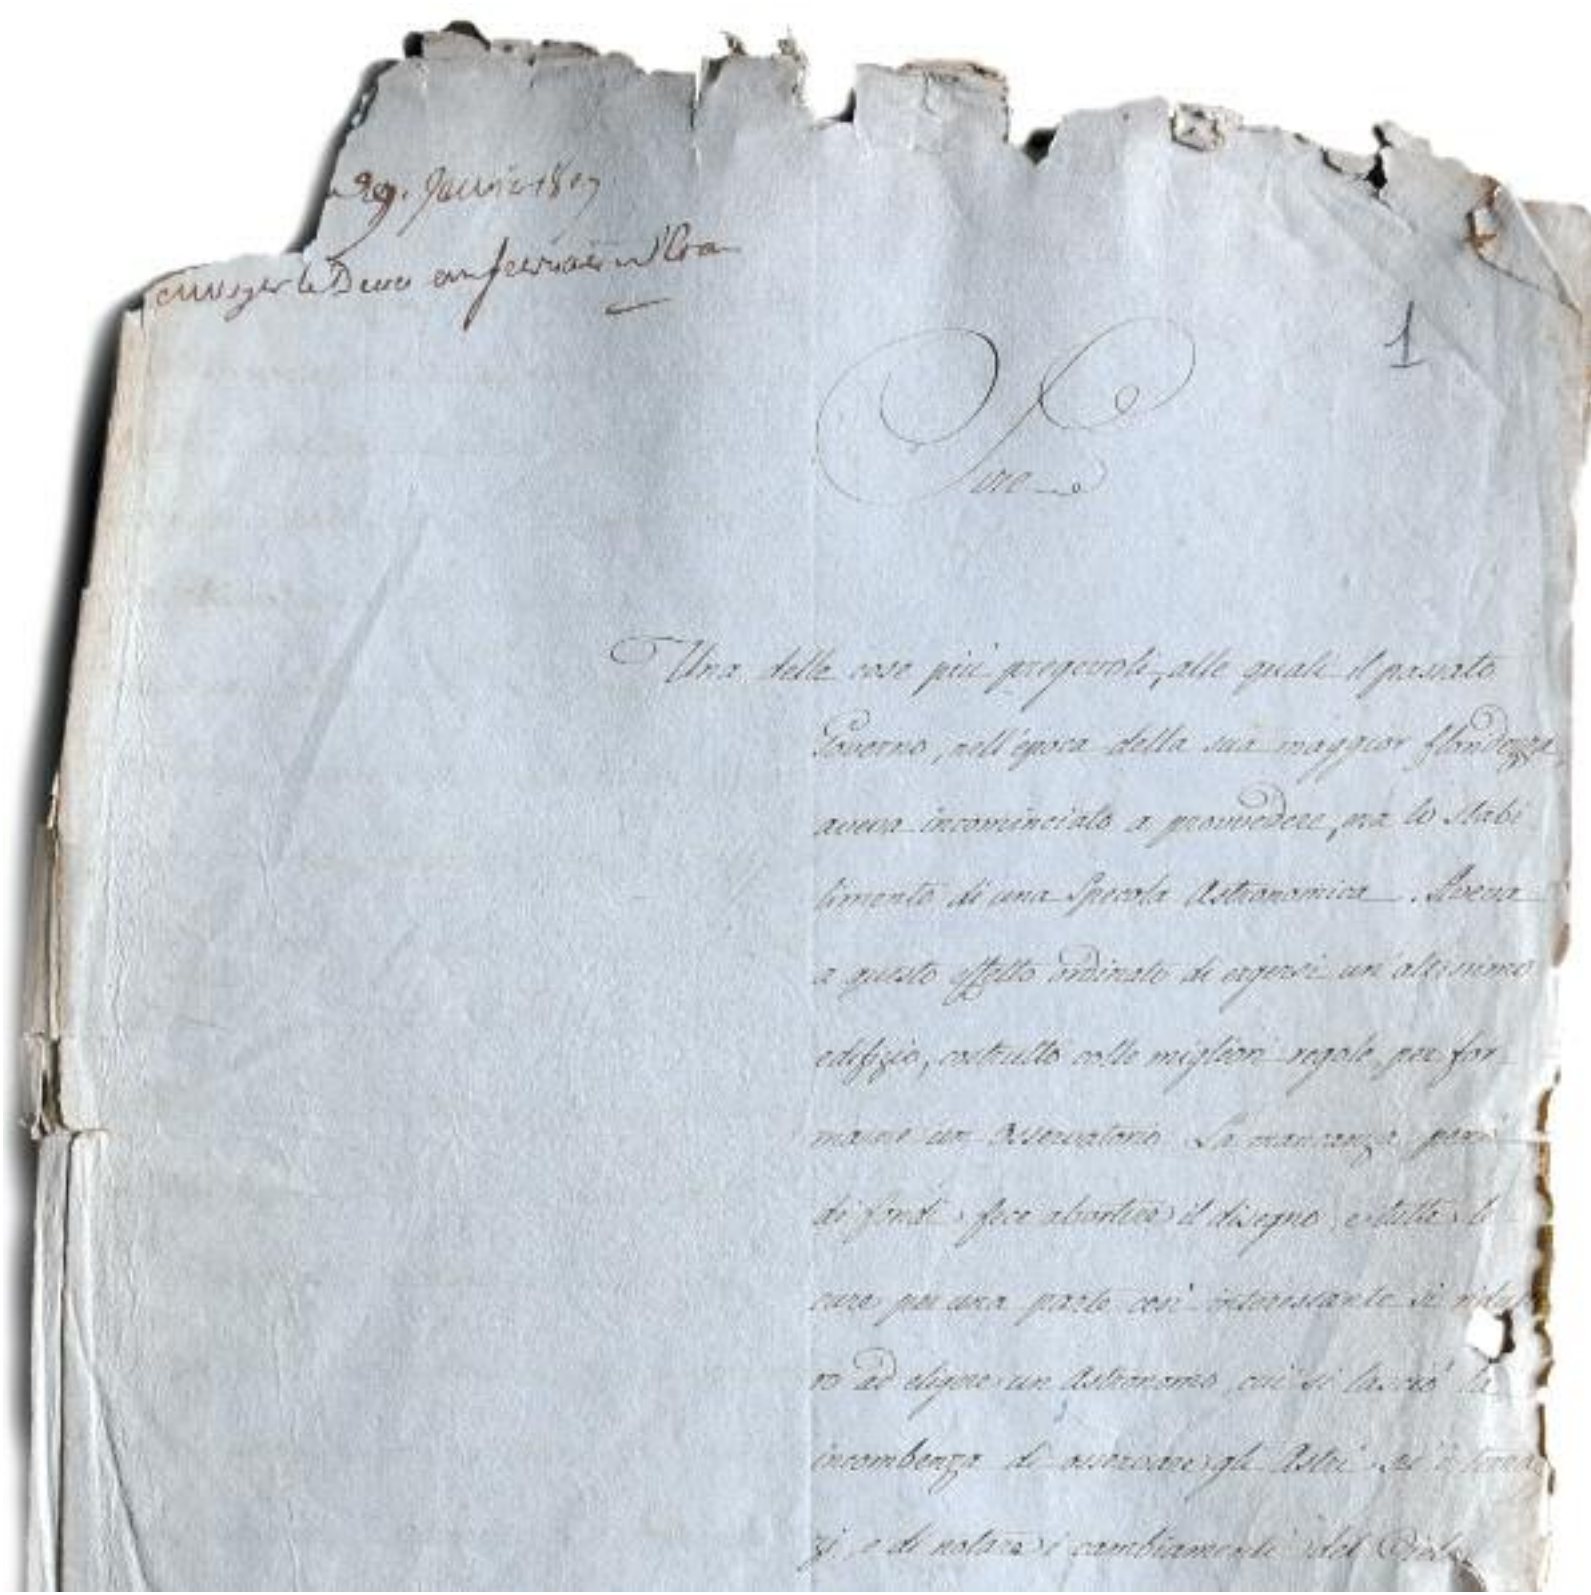 29. Janvier 1807
envoyer le Decret
1
Sire
Una delle cose più pregevoli, alle quali il passato
Governo, nell'epoca della sua maggior floridezza,
aveva incominciato a provvedere, era lo stabi
limento di una Specola Astronomica. Aveva
a questo effetto ordinato di ergersi un'altissimo
edifizio, costrutto colle migliori regole, per for
marne un osservatorio. La mancanza però
di fondi fece abortire il disegno, e tutte le
cure per una parte così interessante si
ro ad eligere un Astronomo, cui si lasciò la
incombenza di osservare gli Astri
zi, e di notare i cambiamenti del Cielo